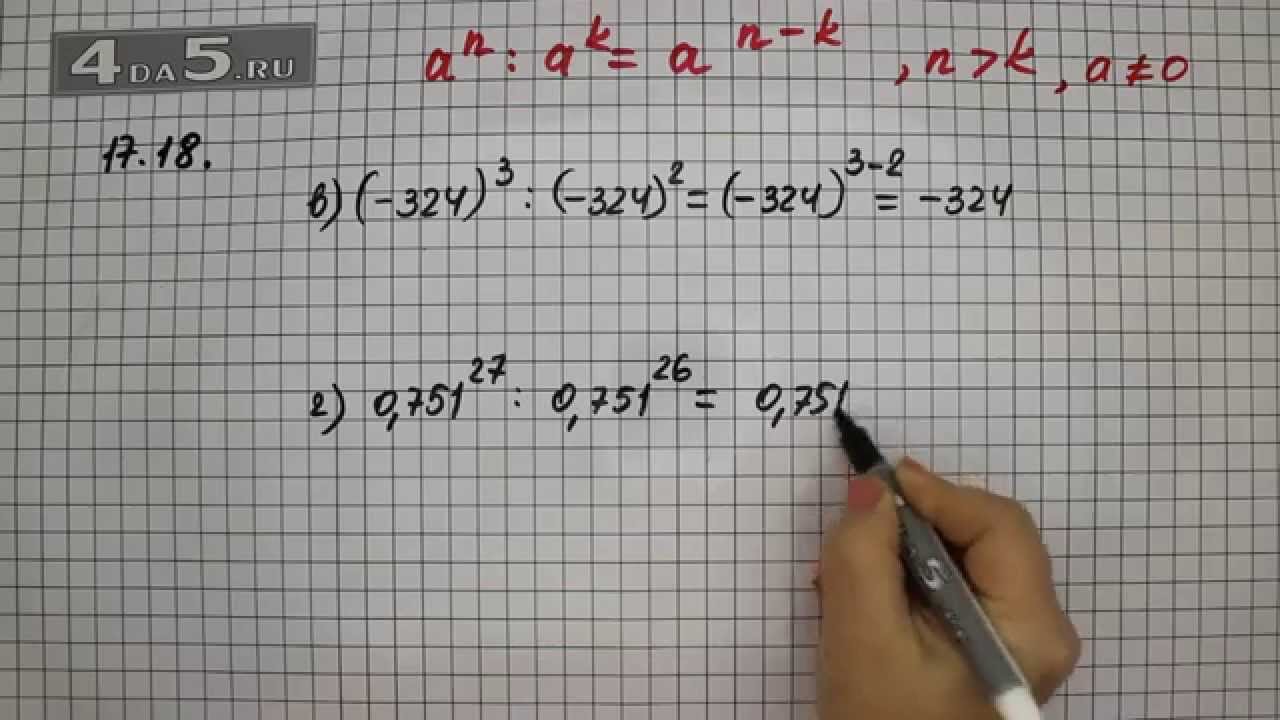 4DA5.RU
aⁿ : aᵏ = aⁿ⁻ᵏ , n > k , a ≠ 0
17.18.
в) (-324)³ : (-324)² = (-324)³⁻² = -324
г) 0,751²⁷ : 0,751²⁶ = 0,751